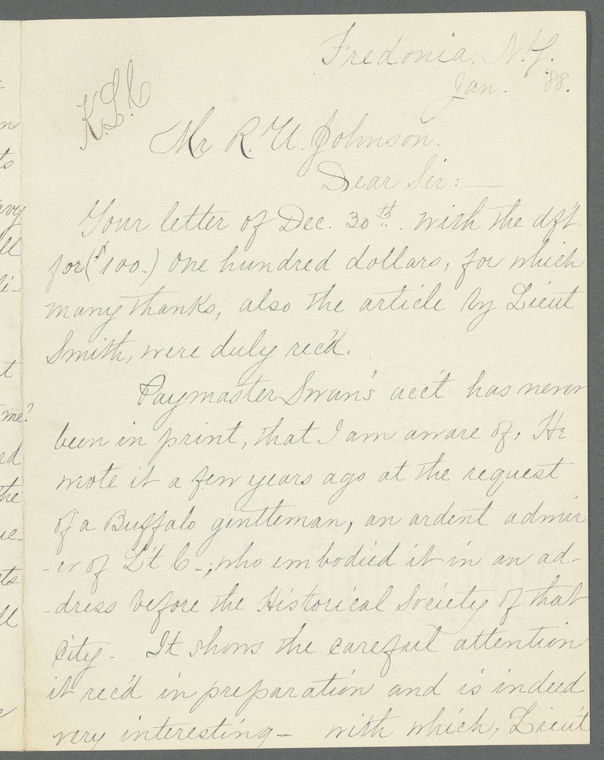 Fredonia, N.Y.
Jan. '88.
K.L.C
Mr R. U. Johnson.
Dear Sir: —
Your letter of Dec. 30th. with the dft
for ($100.-) one hundred dollars, for which
many thanks, also the article by Lieut
Smith, were duly rec'd.
Paymaster Swan's acc't has never
been in print, that I am aware of. He
wrote it a few years ago at the request
of a Buffalo gentleman, an ardent admir
-er of L't C-, who embodied it in an ad-
-dress before the Historical Society of that
city. It shows the careful attention
it rec'd in preparation and is indeed
very interesting - with which, Lieut
n
to
ll
li-
t
me?
ed
the
ue-
ts
ll